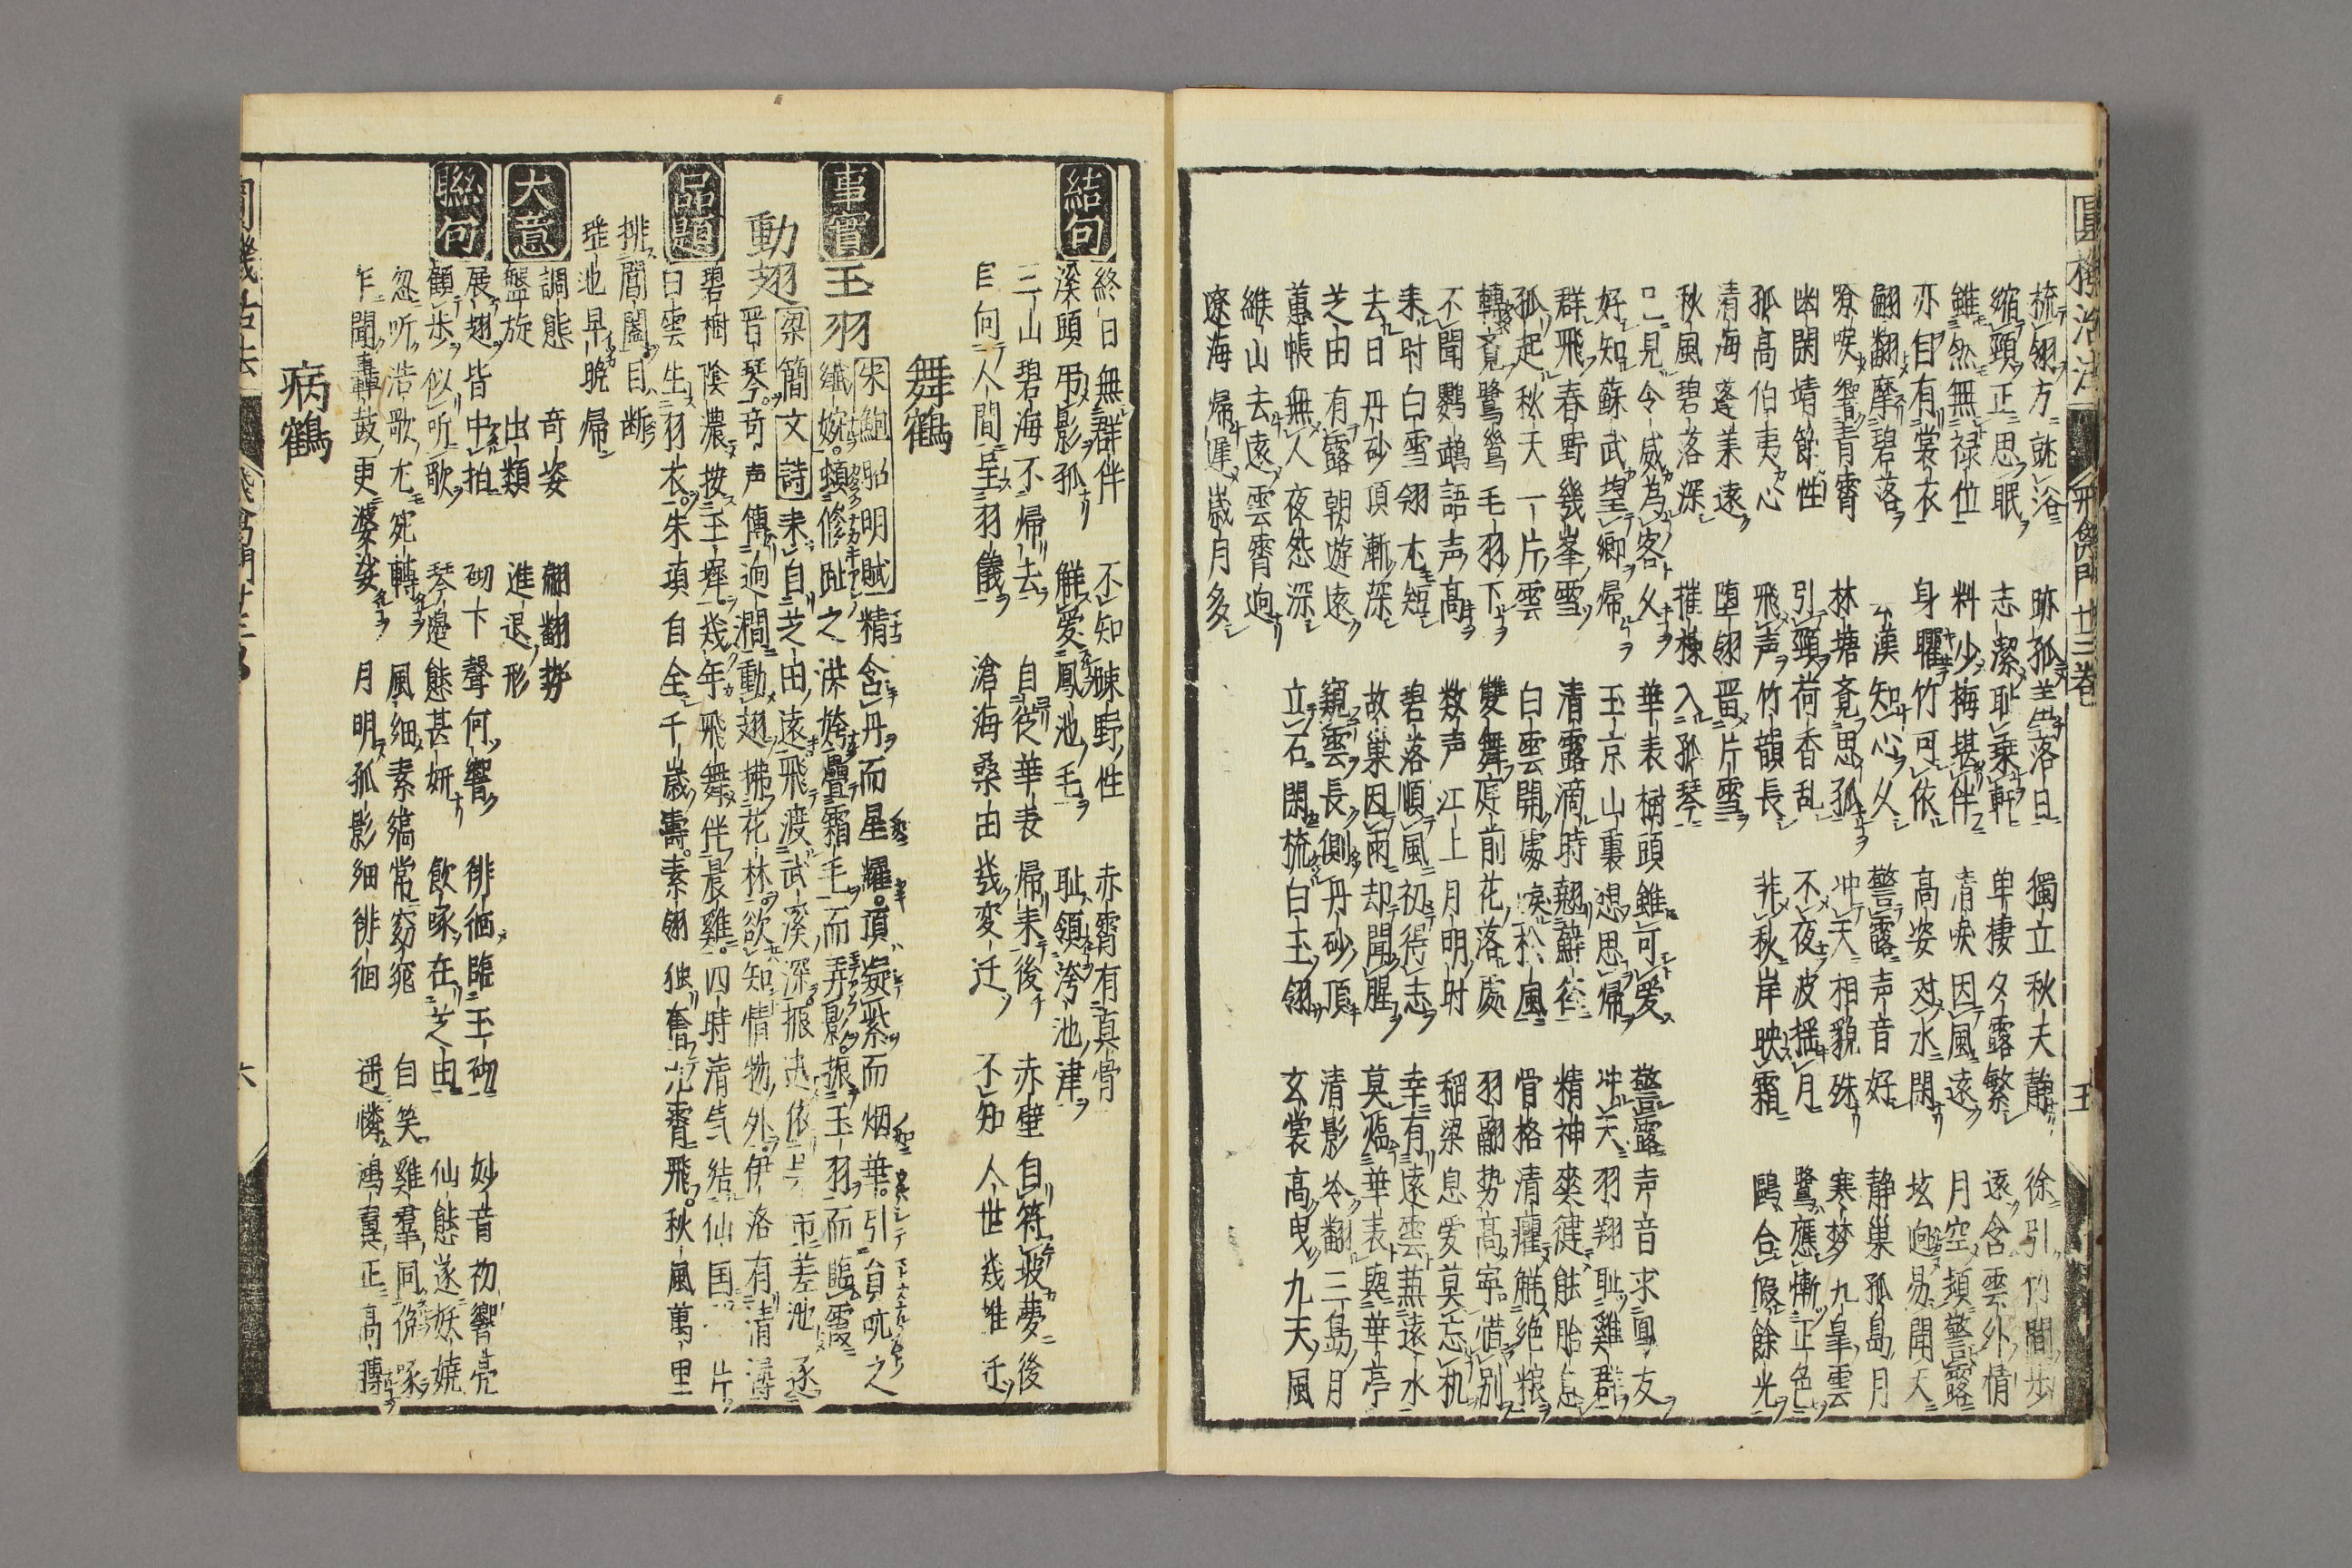 梳翎方就浴 跡孤盖落日 獨立秋夫静 徐引竹間步
縮頸正思眠 志潔耻乗軒 单棲夕露繁 遠含雲外情
雖然無禄位 料少梅堪伴 清唳因風遠 月空頻警露
亦自有裳衣 身臞竹可依 高姿对水閑 易開天
翩翻摩碧落 漢知心久 警露声音好 静巢孤島月
嘹唳響青霄 林塘竟思孤 冲天相貌殊 寒梦九皐雲
幽閑靖節性 引頸荷香乱 不夜波揺月 鷺應慚正色
孤高伯夷心 飛声竹韻長 非秋岸映霜 鷗合假餘光
清海蓬莱遠 墮翎晋片雪
秋風碧落深 摧㯶入孤琴
見令威為客久 華表樯頭雖可愛 警露声音求鳳友
好知蘇武望郷帰 玉京山裏想思帰 冲天羽翔耻雞群
群飛春野幾峯雪 清露滴時翹蘚徑 精神爽健能胎息
孤起秋天一片雲 白雲開處唳秋風 骨格清癯觧絶粮
轉覚鷺鷥毛羽下 雙舞庭前花落處 羽翮势高寧惜别
不聞鸚鵡語声高 数声江上月明时 稲梁息爱莫忘机
来时白雪翎尤短 碧落順風初得志 幸有遠雲蒹遠水
去日丹砂頂漸深 故巢因雨却聞腥 莫臨華表與華亭
芝田有露朝遊遠 窺雲長側丹砂頂 清影冷翻三島月
蕙帳無人夜怨深 立石閑梳白玉翎 玄裳高曳九天風
維山去遠雲霄迥
遼海帰遅歳月多
結句 終日無群伴 不知疎野性 赤霄有真骨
溪頭弔影孤 觧愛鳳池毛 耻領洿池津
三山碧海不帰去 自従華表帰来後 赤壁自符坡夢後
向人間呈羽儀 滄海桑田幾変迁 不知人世幾堆迁
舞鶴
事實 玉羽 宋鮑照明賦 精含丹而星耀。頂凝紫而烟華。引員吭之
纎婉。頓修趾之洪姱。疊霜毛而弄影。振玉羽而臨霞
動翅 梁簡文詩 来自芝田遠飛渡武溪深振迅依呉市差池逐
晋琴。奇声傳迥澗動翅拂花林。欲知情物外。伊洛有清潯
品題 碧樹陰濃按玉墀。幾年飛舞伴晨雞。四時清気結仙国 片
白雲生羽衣。朱頂自全千歳壽。素翎独奮九霄飛。秋風萬里
排閶闔自断
瑶池早晚帰
大意 調態 奇姿 翩翻势
盤旋 出類 進退形
聮句 展翅皆中拍 砌下聲何響 徘徊臨玉砌 妙音初響亮
顧歩似听歌 琴邉態甚妍 飲啄在芝田 仙態遂妖嬈
忽听浩歌尤宛轉 風細素縞常窈窕 自笑雞羣同俯啄
乍聞轟鼓更婆娑 月明孤影細徘徊 遥憐鴻翼正高摶
病鶴